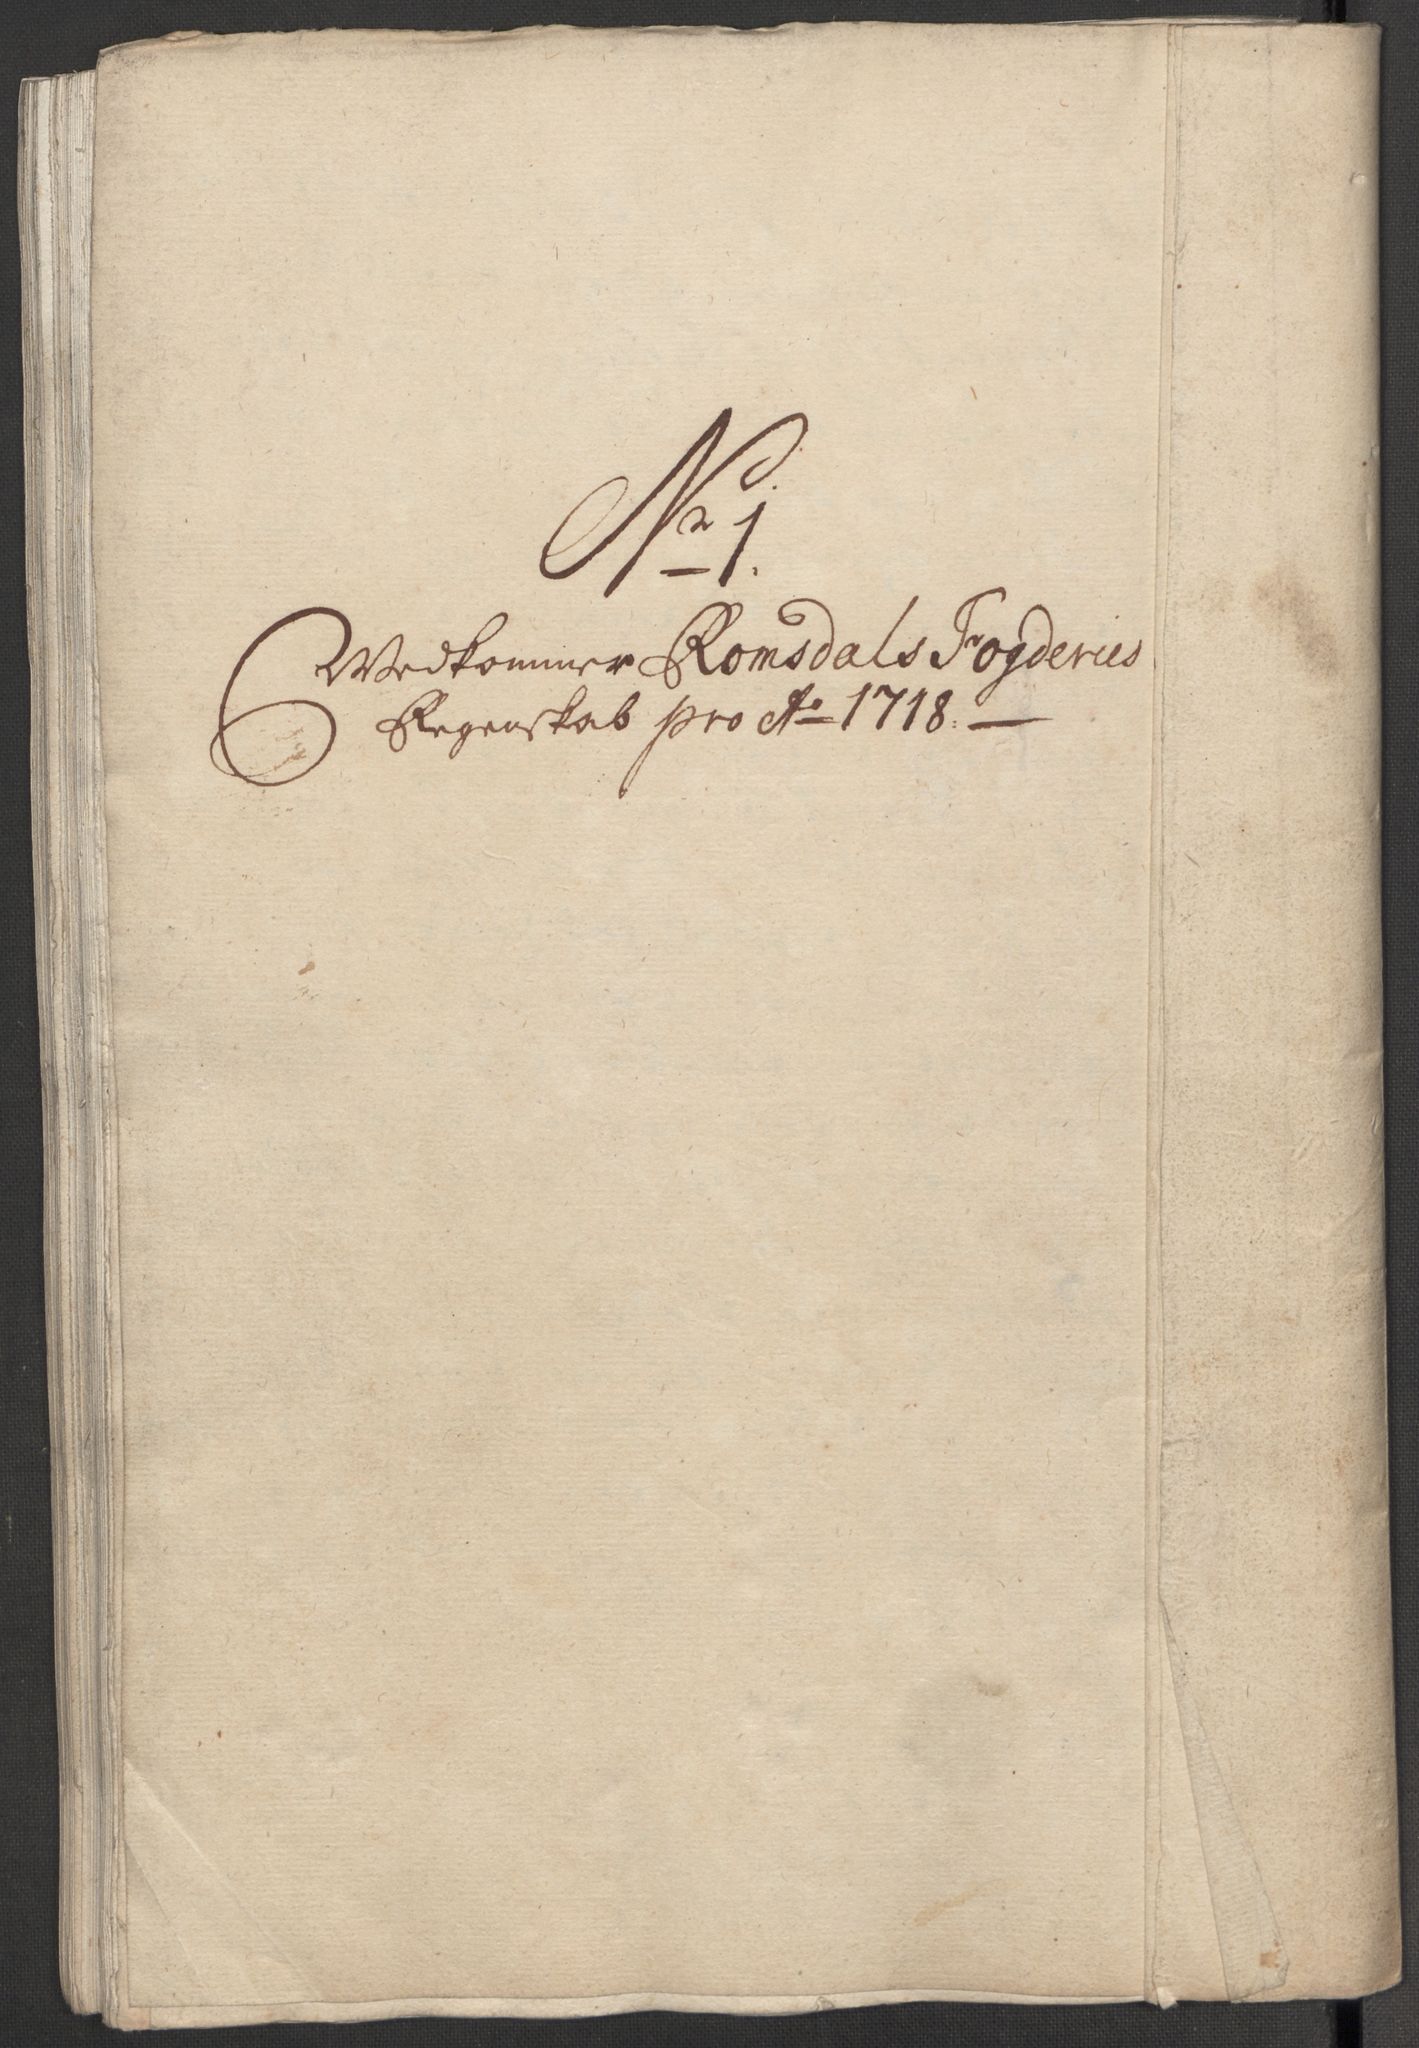 No 1.
Vedkommer Romsdals Fogderies
Regenskab pro Ao 1718.